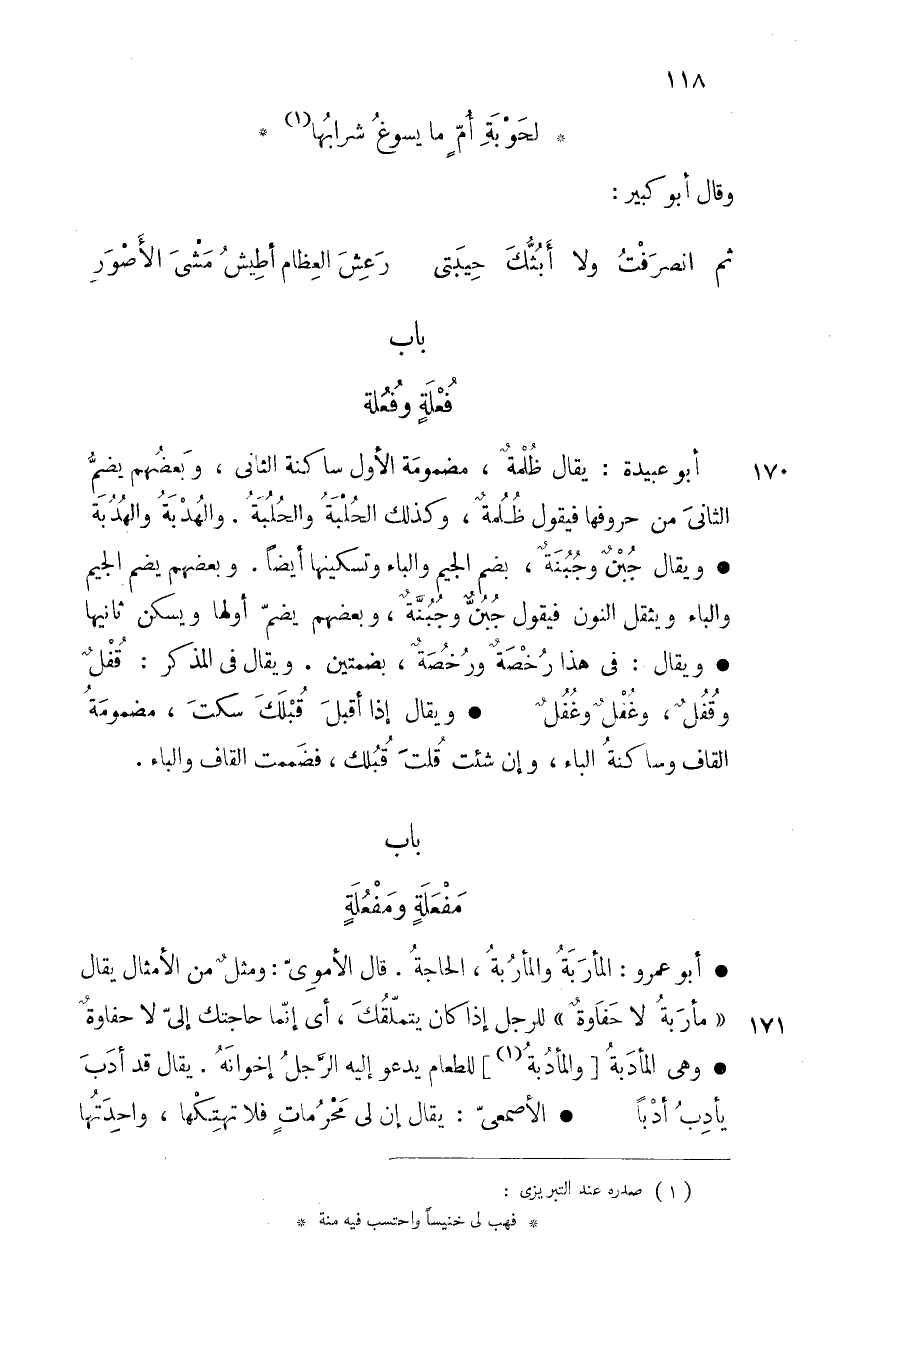 ١١٨
* لحَوْبَةِ أُمٍّ ما يسوغُ شرابُها(١) *
وقال أبو كبير :
ثم انصرَفْتُ ولا أَبُثُّكَ حِيبَتى رَعِشَ العِظام أطِيشُ مَشْىَ الأَصْوَرِ
باب
فُعْلَةٍ وفُعُلة
١٧٠ أبو عبيدة : يقال ظُلْمةٌ ، مضمومَة الأول ساكنة الثانى ، وبَعضُهم يضمُّ
الثانىَ من حروفها فيقول ظُلُمةٌ ، وكذلك الحُلْبَةُ والحُلُبَةُ . والهُدْبَةُ والهُدُبَة
● ويقال جُبْنٌ وجُبُنَةٌ ، بضم الجيم والباء وتسكينها أيضاً . وبعضهم يضم الجيم
والباء ويثقل النون فيقول جُبُنٌّ وجُبُنَّةٌ ، وبعضهم يضمّ أولها ويسكن ثانيها
● ويقال : فى هذا رُخْصَةٌ ورُخُصَةٌ ، بضمتين . ويقال فى المذكر : قُفْلٌ
وقُفُلٌ ، وغُفْلٌ وغُفُلٌ ● ويقال إذا أقبلَ قُبْلَكَ سكتَ ، مضمومَةُ
القاف وساكنةُ الباء ، وإن شئت قُلتَ قُبُلك ، فضَممت القاف والباء .
باب
مَفْعَلَةٍ ومَفْعُلَةٍ
● أبو عمرو : المأرَبَةُ والمأرُبَةُ ، الحاجةُ . قال الأموىّ : ومثلٌ من الأمثال يقال
١٧١ « مأرَبةُ لا حَفَاوةٌ » للرجل إذا كان يتملّقُكَ ، أى إنّما حاجتك إلىّ لا حفاوةٌ
● وهى المأدَبةُ [ والمأدُبةُ(١) ] للطعام يدعو إليه الرَّجلُ إخوانَهُ . يقال قد أدَبَ
يأدِبُ أدْباً ● الأصمعىّ : يقال إن لى مَحْرُماتٍ فلا تهتِكْها ، واحِدَتُها
(١) صدره عند التبريزى :
* فهب لى خنيساً واحتسب فيه منة *